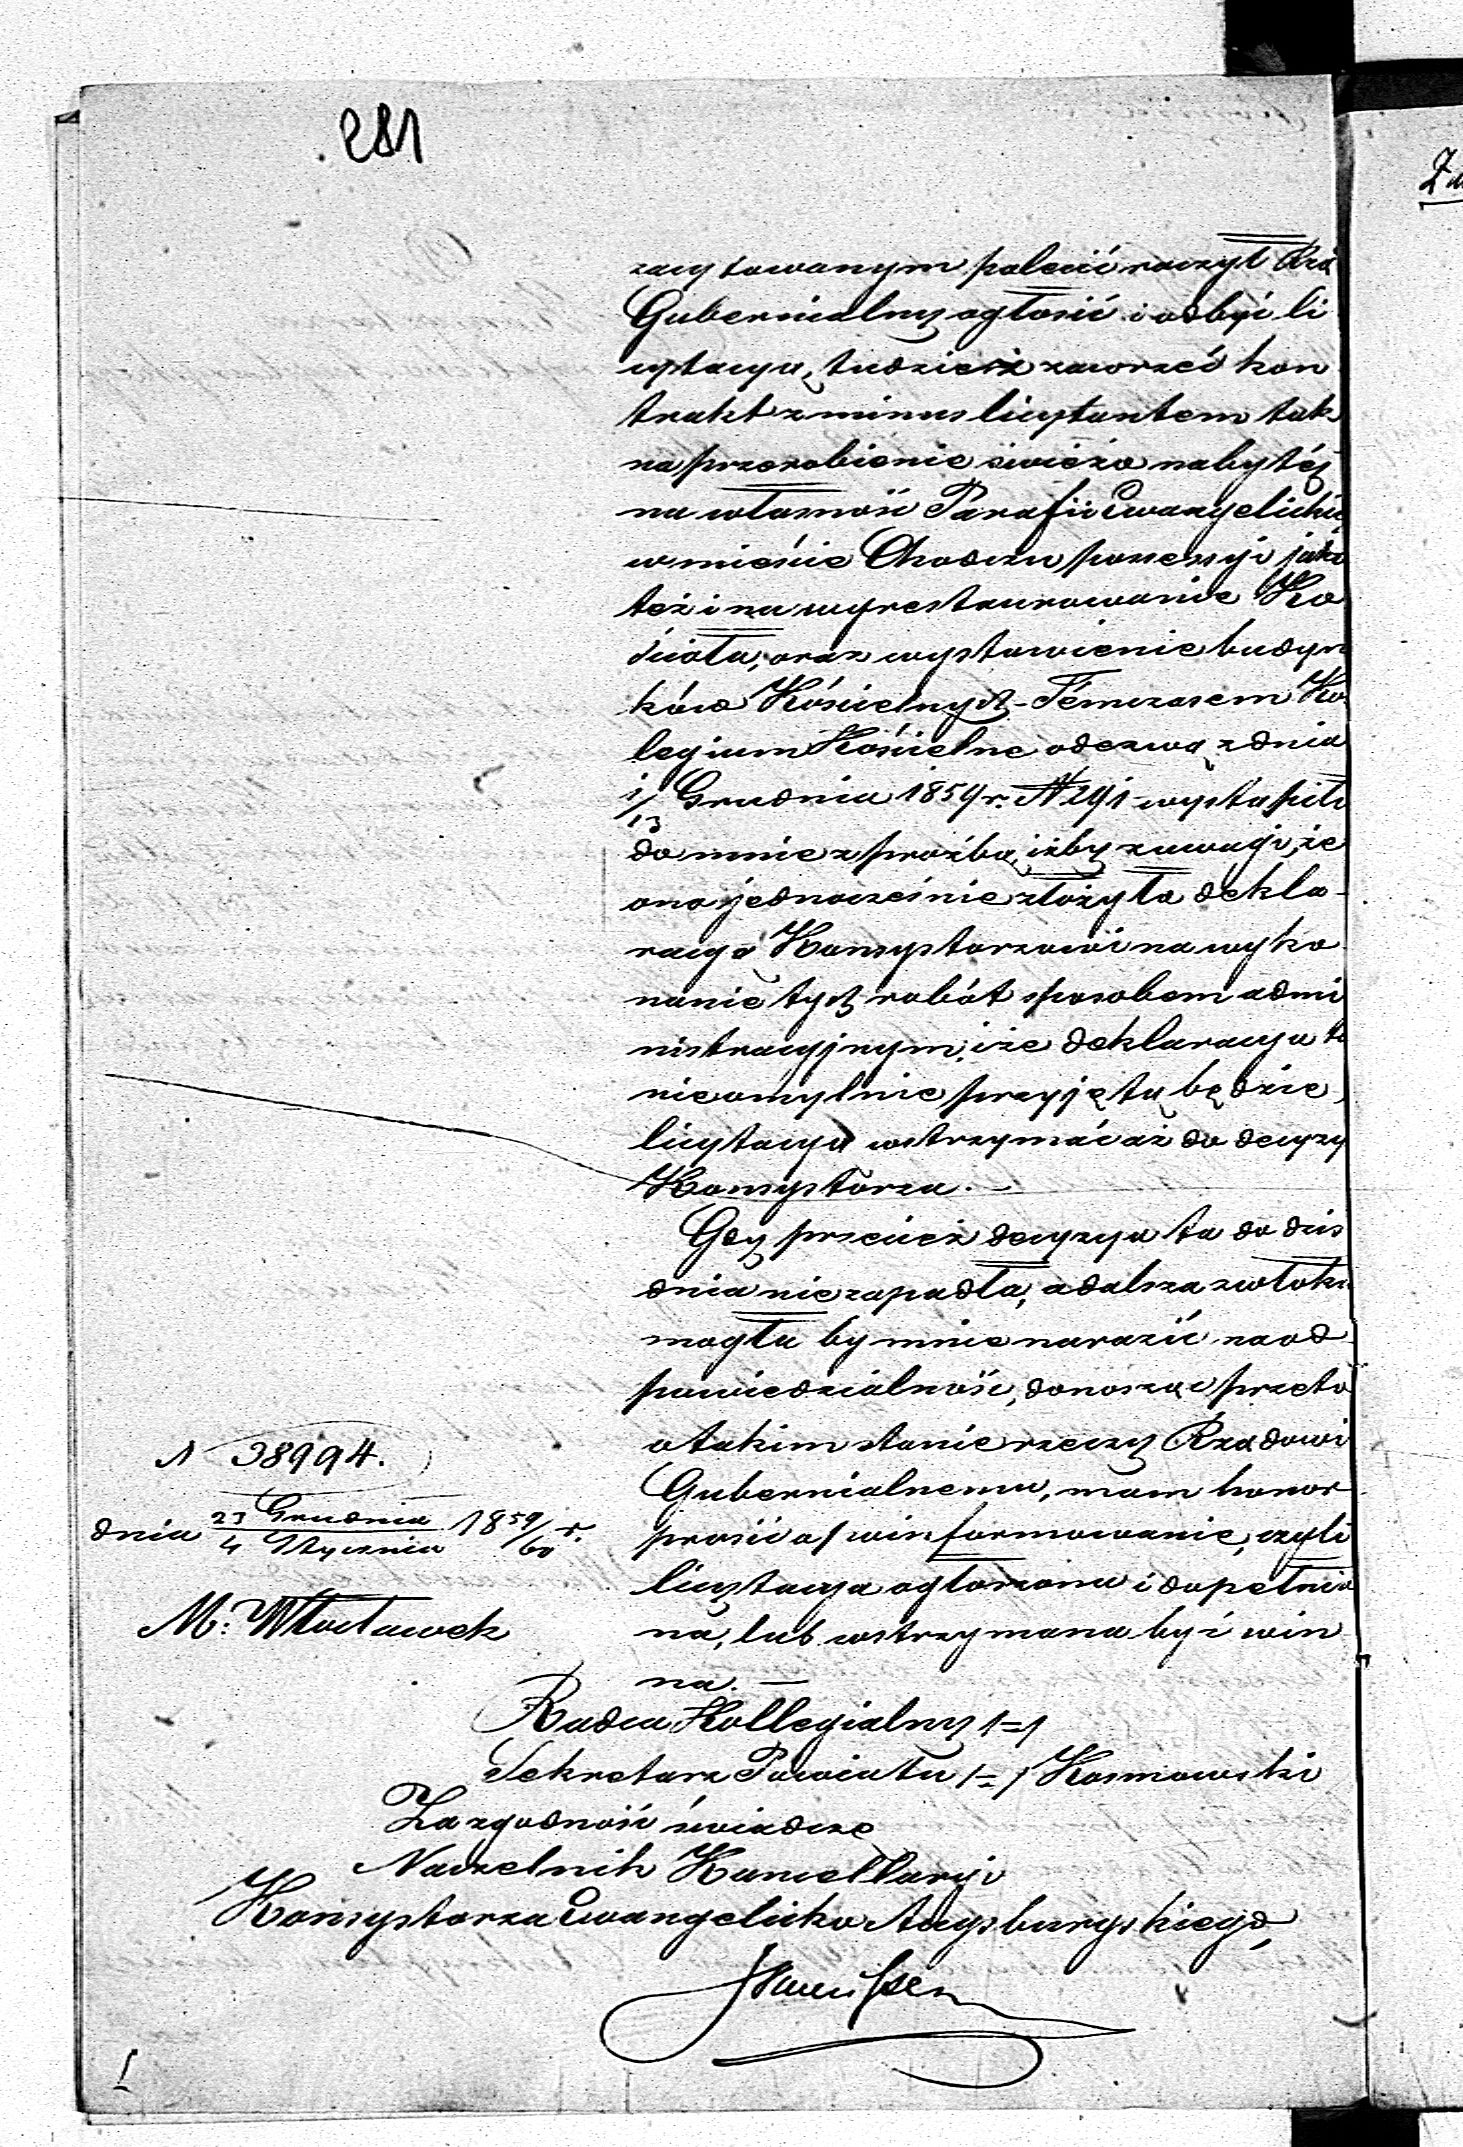 281
zacytowanym polecić raczył Rzą
Gubernialny ogłosić i odbyć li
cytacyą, tudzież zaworzeć kon
trakt z minus licytantem tak
na przerobienie świeżo nabytéj
na własność Parafii Ewangelickiej
w mieście Chodczu possessyi jako
też i na wyrestaurowanie Ko
ścioła, oraz wystawienie budyn
ków Kościelnych - Témczasem Ko
legium Kościelne odezwą z dnia
1/13 Grudnia 1859 r. N 291 wystąpiło
do mnie z proźbą, iżby z uwagi, że
ono jednocześnie złożyło dekla-
racyą Konsystorzowi na wyko
nanie tych robót sposobem admi
nistracyjnym, i że deklaracya ta
nieomylnie przyjętą będzie,
licytacyą wstrzymać aż do decyzyi
Konsystorza. —
Gdy przecież decyzya ta do dziś
dnia nie zapadła, a dalsza zwłoka
mogła by mnie narazić na od
powiedzialność, donosząc przeto
o takim stanie rzeczy Rządowi
Gubernialnemu, mam honor
prosić o poinformowanie, czyli
licytacya ogłoszona i dopełnio
na, lub wstrzymana być win
na. —
N 38994.
dnia 23 Grudnia / 4 Stycznia 1859/60 r.
M: Włocławek
Radca Kollegialny /=/
Sekretarz Powiatu /=/ Kosmowski
Za zgodność świadczę
Naczelnik Kancellaryi
Konsystorza Ewangelicko Augsburgskiego